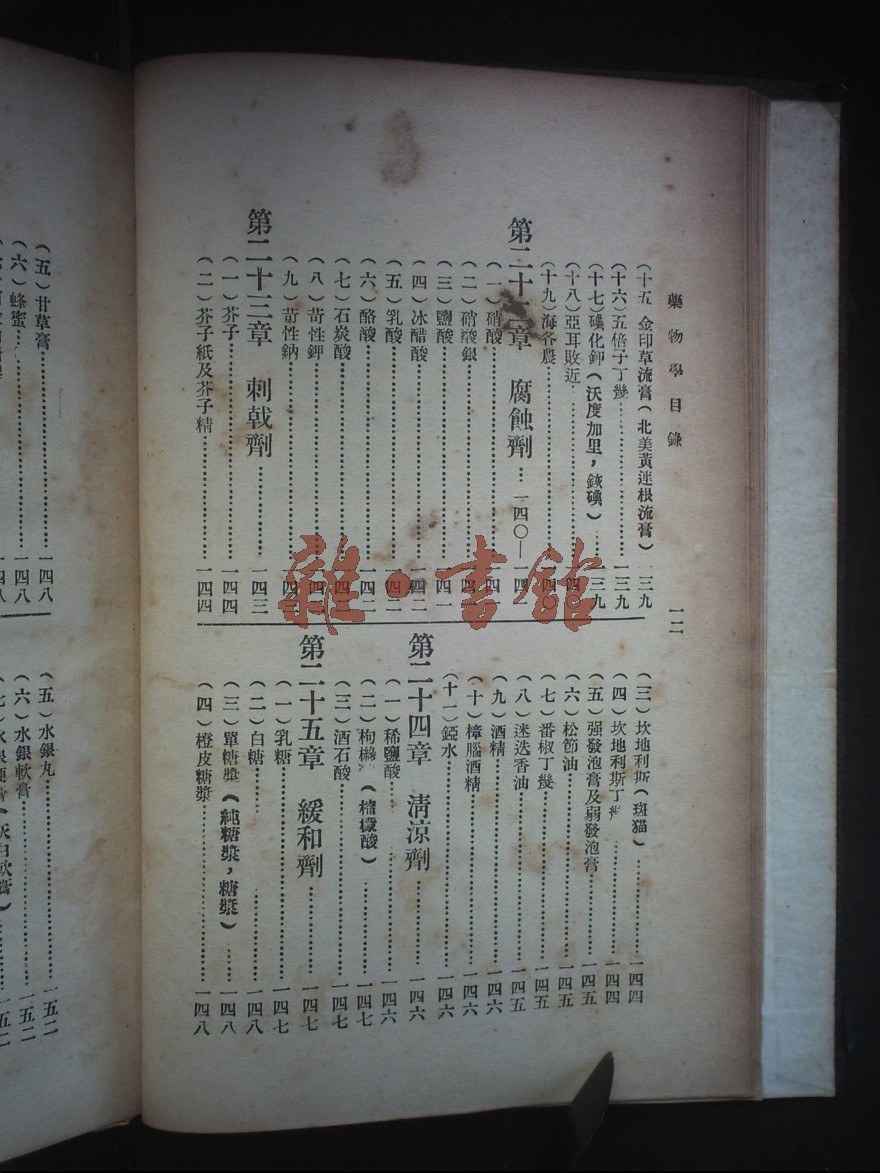 藥物學目錄
一二
(十五)金印草流膏(北美黃連根流膏)一三九
(十六)五倍子丁幾……一三九
(十七)碘化鉀(沃度加里,鉄碘)……一三九
(十八)亞耳敗近……一四〇
(十九)海各農……一四〇
第二十二章 腐蝕劑…一四〇—一四二
(一)硝酸……一四
(二)硝酸銀……一四
(三)鹽酸……一四一
(四)冰醋酸……一四二
(五)乳酸……一四二
(六)酪酸……一四二
(七)石炭酸……一四二
(八)苛性鉀……一四二
(九)苛性鈉……一四
第二十三章 刺戟劑……一四三
(一)芥子……一四四
(二)芥子紙及芥子精……一四四
(三)坎地利斯(斑猫)……一四四
(四)坎地利斯丁……一四四
(五)强發泡膏及弱發泡膏……一四五
(六)松節油……一四五
(七)番椒丁幾……一四五
(八)迷迭香油……一四五
(九)酒精……一四六
(十)樟腦酒精……一四六
(十一)錏水……一四六
第二十四章 清涼劑……一四六
(一)稀鹽酸……一四六
(二)枸櫞(檸檬酸)……一四七
(三)酒石酸……一四七
第二十五章 緩和劑……一四七
(一)乳糖……一四七
(二)白糖……一四八
(三)單糖漿(純糖漿,糖漿)……一四八
(四)橙皮糖漿……一四八
(五)甘草膏……一四八
(六)蜂蜜……一四八
一四八
(五)水銀丸……一五二
(六)水銀軟膏……一五二
(七)水銀硬膏(灰白軟膏)……一五二
雜·書館